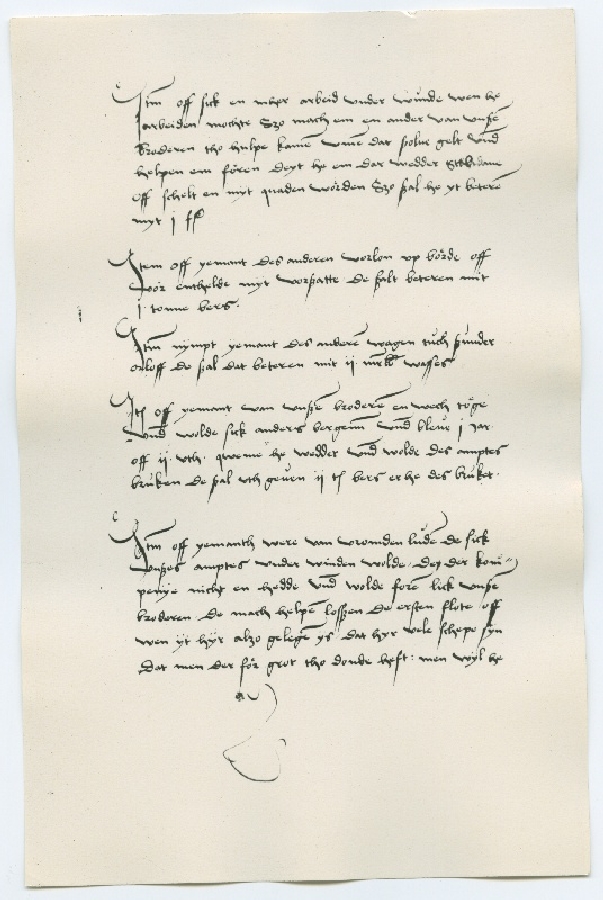 Itm off sick en mher arbeid vnder wunde wen he
arbeiden mochte Szo mach em en ander van vnsze
broderen tho hulpe kamen vmme dat solue gelt vnd
helpen em foren deyt he em dar wedder
off schelt en myt quaden worden Szo sal he yt beteren
myt j
Item off yemant des anderen vorlon vp borde off
vor entholde myt vorsatte de salt beteren mit
j tonne bers.
Itm nympt yemant des anderen wagen tuch sunder
orloff de sal dat beteren mit ij wasses
Itm off yemant van vnsze broderen en wech toge
vnd wolde sick anders bergenn vnd bleue j Jar
off ij vth. queme he wedder vnd wolde des amptes
bruken de sal vth geuen ij bers er he des bruket.
Itm off yemanth were van vromden luden de sick
vnszes amptes vnder winden wolde des der kom-
penye nicht en hedde vnd wolde foren lick vnsze
broderen de mach helpen losszen de ersten flote off
wen yt hyr alzo gelegen ys dat hyr vele schepe syn
dat men der for grot tho donde heft: men wyl he